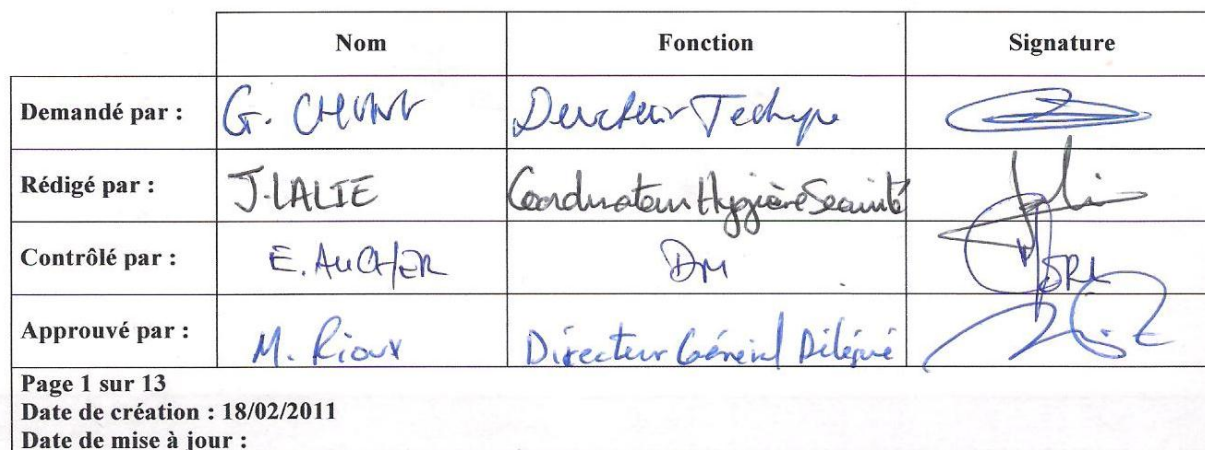 Nom Fonction Signature
Demandé par : G. Directeur Technique
Rédigé par : J. LALIE Coordinateur Hygiène Sécurité
Contrôlé par : E. AUCHER DM
Approuvé par : M. Rioux Directeur Général Délégué
Page 1 sur 13
Date de création : 18/02/2011
Date de mise à jour :